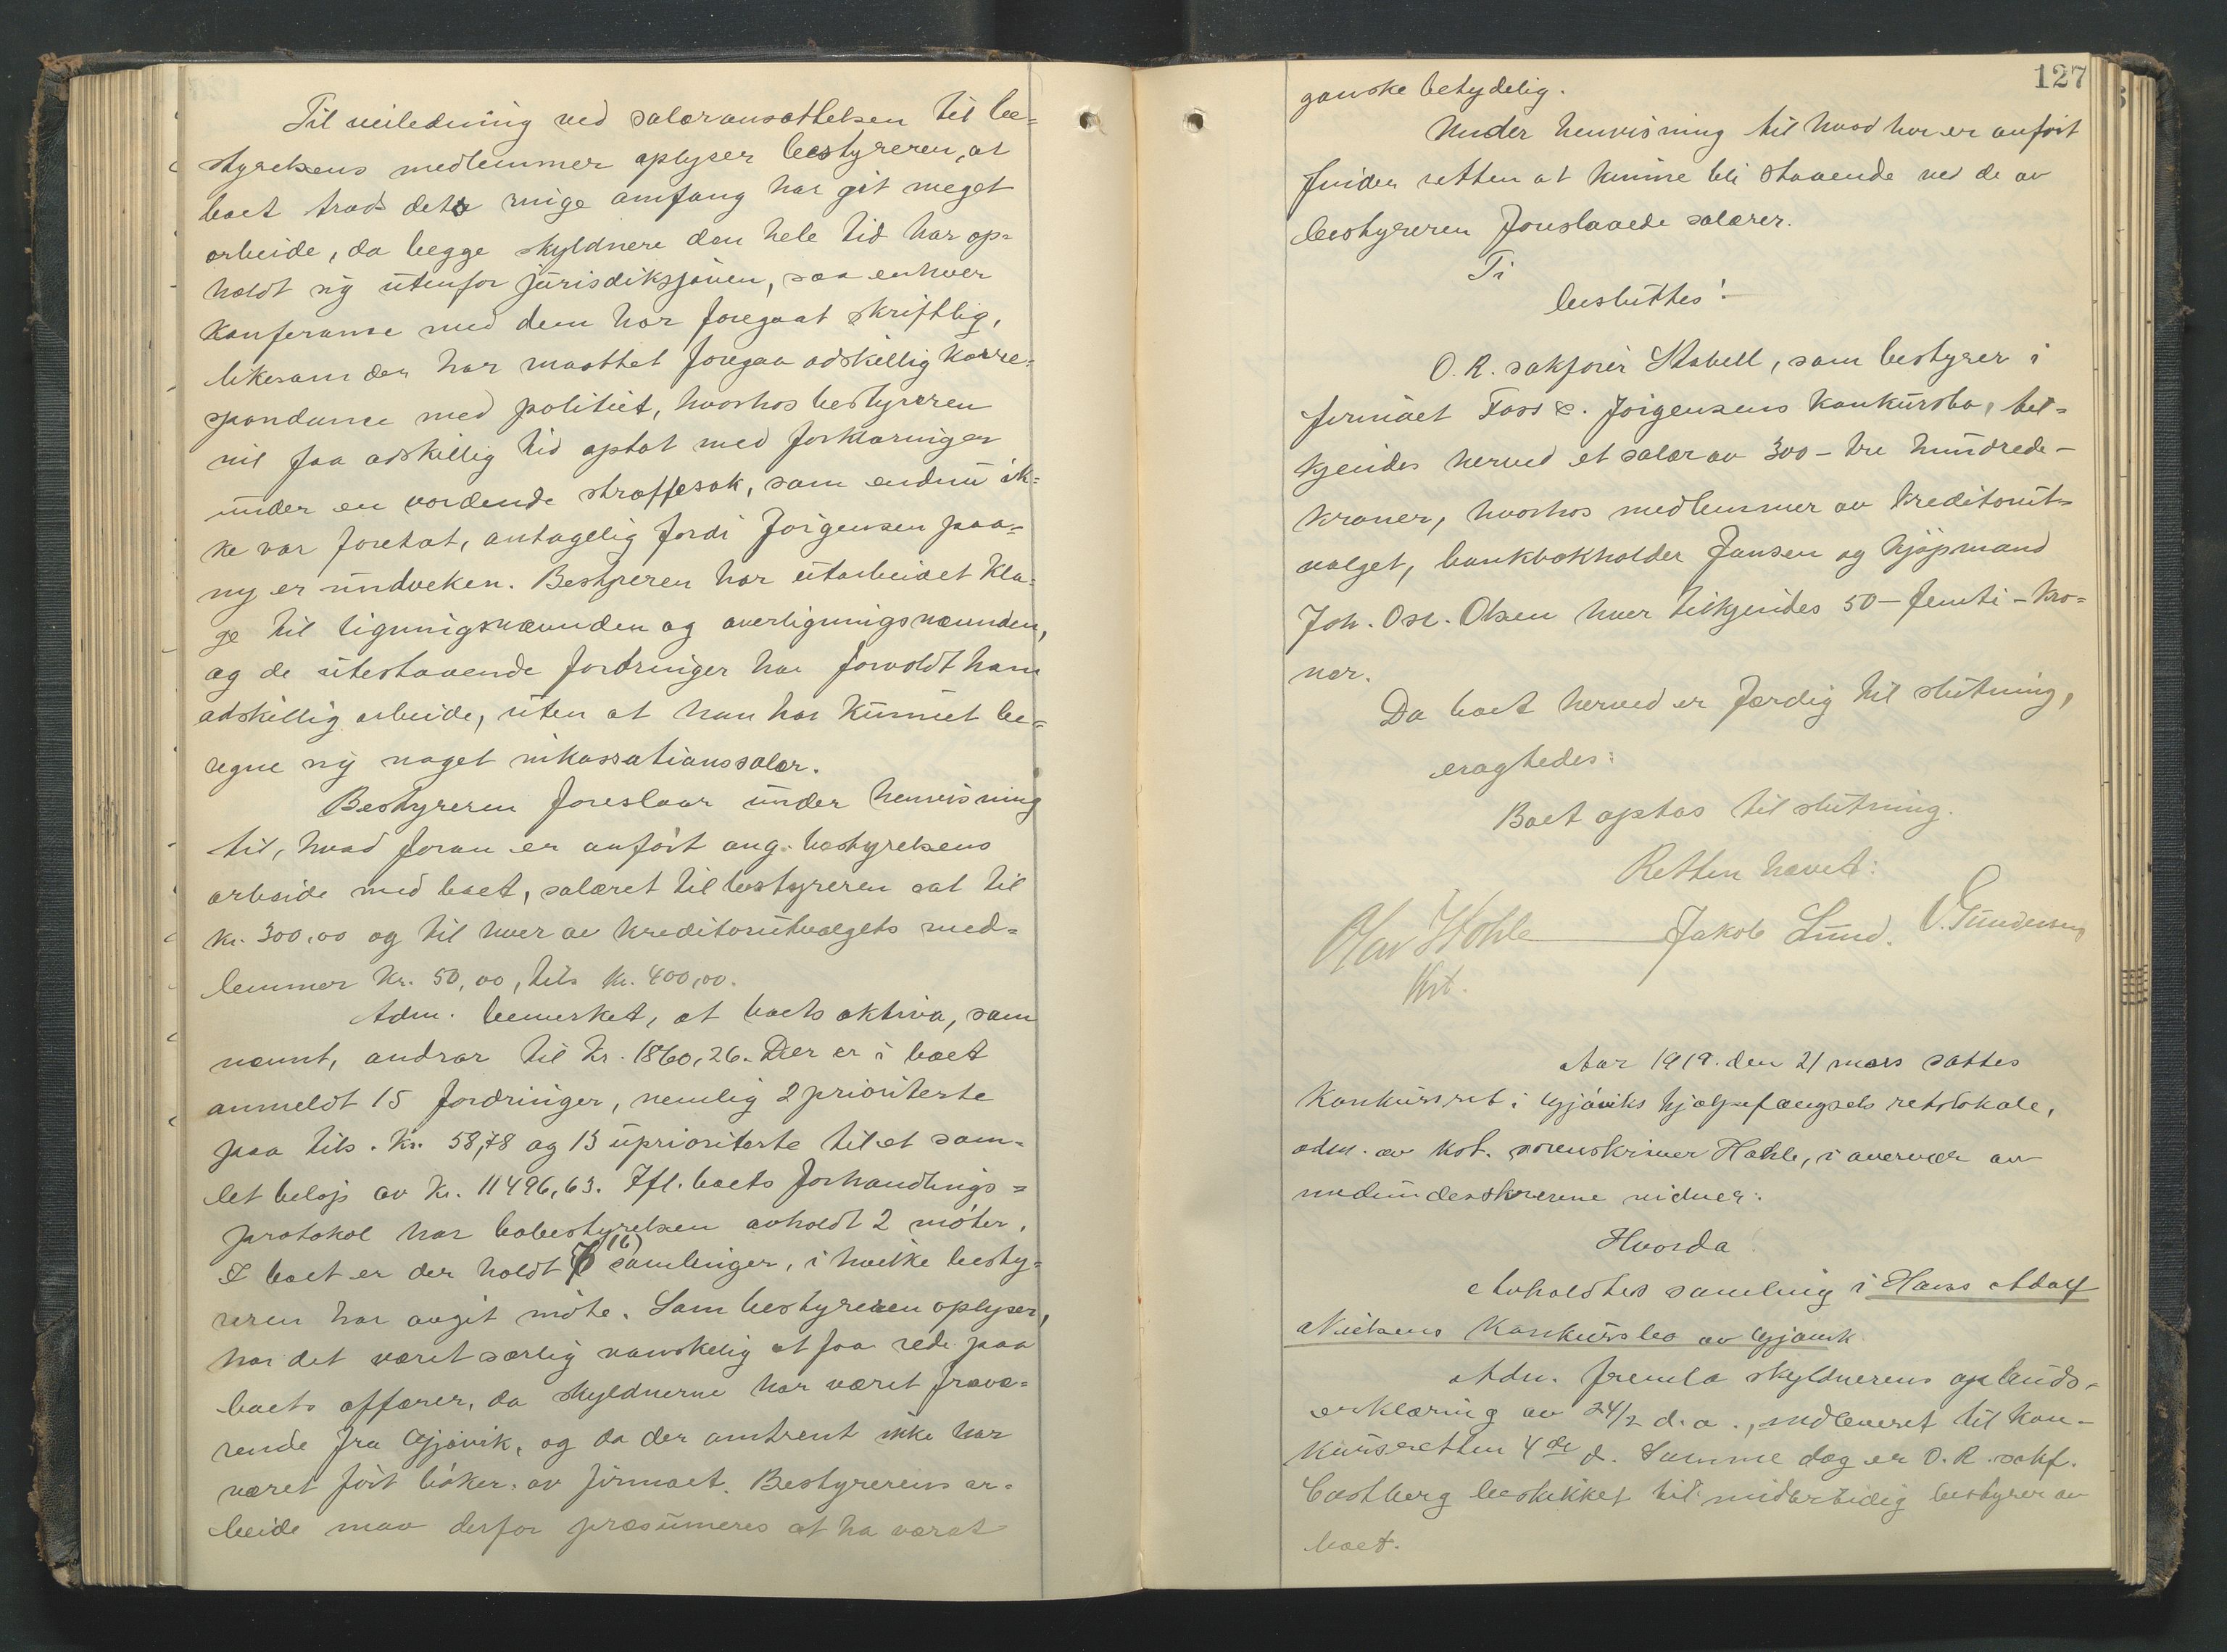 Til veiledning ved salæransættelsen til be=
styrelsens medlemmer oplyser bestyreren, at
boet trods dets ringe omfang har git meget
arbeide, da begge skyldnere den hele tid har op=
holdt sig utenfor jurisdiksjonen, saa enhver
konferanse med dem har foregaat skriftlig,
likesom der har maattet foregaa adskillig korre=
spondanse med politiet, hvorhos bestyreren
vil faa adskillig tid optat med forklaringer
under en vordende straffesak, som endnu ik=
ke var foretat, antagelig fordi Jørgensen paa=
ny er undveken. Bestyreren har utarbeidet kla=
ge til ligningsnævnden og overligningsnævnden,
og de utestaaende fordringer har forvoldt ham
adskillig arbeide, uten at han har kunnet be=
regne sig noget inkassationssalær.
Bestyreren foreslaar under henvisning
til, hvad foran er anført ang. bestyrelsens
arbeide med boet, salæret til bestyreren sat til
kr. 300,00 og til hver av kreditorutvalgets med=
lemmer kr. 50,00, tils kr. 400,00.
Adm. bemerket, at boets aktiva, som
nævnt, andrar til kr. 1860,26. Der er i boet
anmeldt 15 fordringer, nemlig 2 prioriterte
paa tils. kr. 58,78 og 13 uprioriterte til et sam=
let beløp av kr. 11496,63. Ifl. boets forhandlings=
protokol har bobestyrelsen avholdt 2 møter.
I boet er der holdt (6) samlinger, i hvilke besty=
reren har avgit møte. Som bestyreren oplyser,
har det været særlig vanskelig at faa rede paa
boets affærer, da skyldnerne har været fravæ=
rende fra Gjøvik, og da der omtrent ikke har
været ført bøker av firmaet. Bestyrerens ar=
beide maa derfor præsumeres at ha været
127
ganske betydelig.
Under henvisning til hvad her er anført
finder retten at kunne bli staaende ved de av
bestyreren foreslaaede salærer.
Ti
besluttes:
O. R. sakfører Stabell, som bestyrer i
firmaet Foss & Jørgensens konkursbo, til=
kjendes herved et salær av 300 – tre hundrede –
kroner, hvorhos medlemmer av kreditorut=
valget, bankbokholder Jansen og kjøpmand
Joh. Ose. Olsen hver tilkjendes 50 – femti – kro=
ner.
Da boet herved er færdig til slutning,
eragtedes:
Boet optas til slutning.
Retten hævet:
Olav Hohle Jakob Lund. O. Gundersen
kst.
Aar 1919. den 21 mars sattes
Konkursret i Gjøviks hjælpefængsels retslokale,
adm. av kst. sorenskriver Hohle, i overvær av
medunderskrevne vidner:
Hvorda
Avholdtes samling i Hans Adolf
Nielsens Konkursbo av Gjøvik
Adm. fremla skyldnerens opbuds=
erklæring av 24/2 d. a., indleveret til kon=
kursretten 4de d. Samme dag er O. R. sakf.
Castberg beskikket til midlertidig bestyrer av
boet.